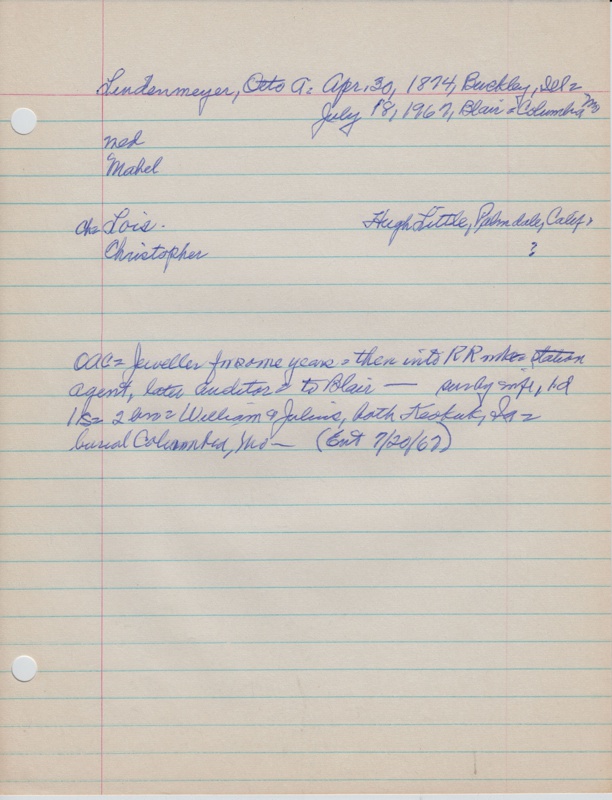 Lindenmeyer, Otto A: Apr. 30, 1874, Buckley, Ill =
July 18, 1967, Blair = Columbia Mo
med
Mabel
Ch= Lois. Hugh Little, Palmdale, Calif.
Christopher ?
OAL= Jeweller for some years = then into RR station
agent, later auditor = to Blair —
1s= 2 bro= William & Julius, both Keokuk, Ia =
burial Columbia, Mo — (Ent 7/20/67)